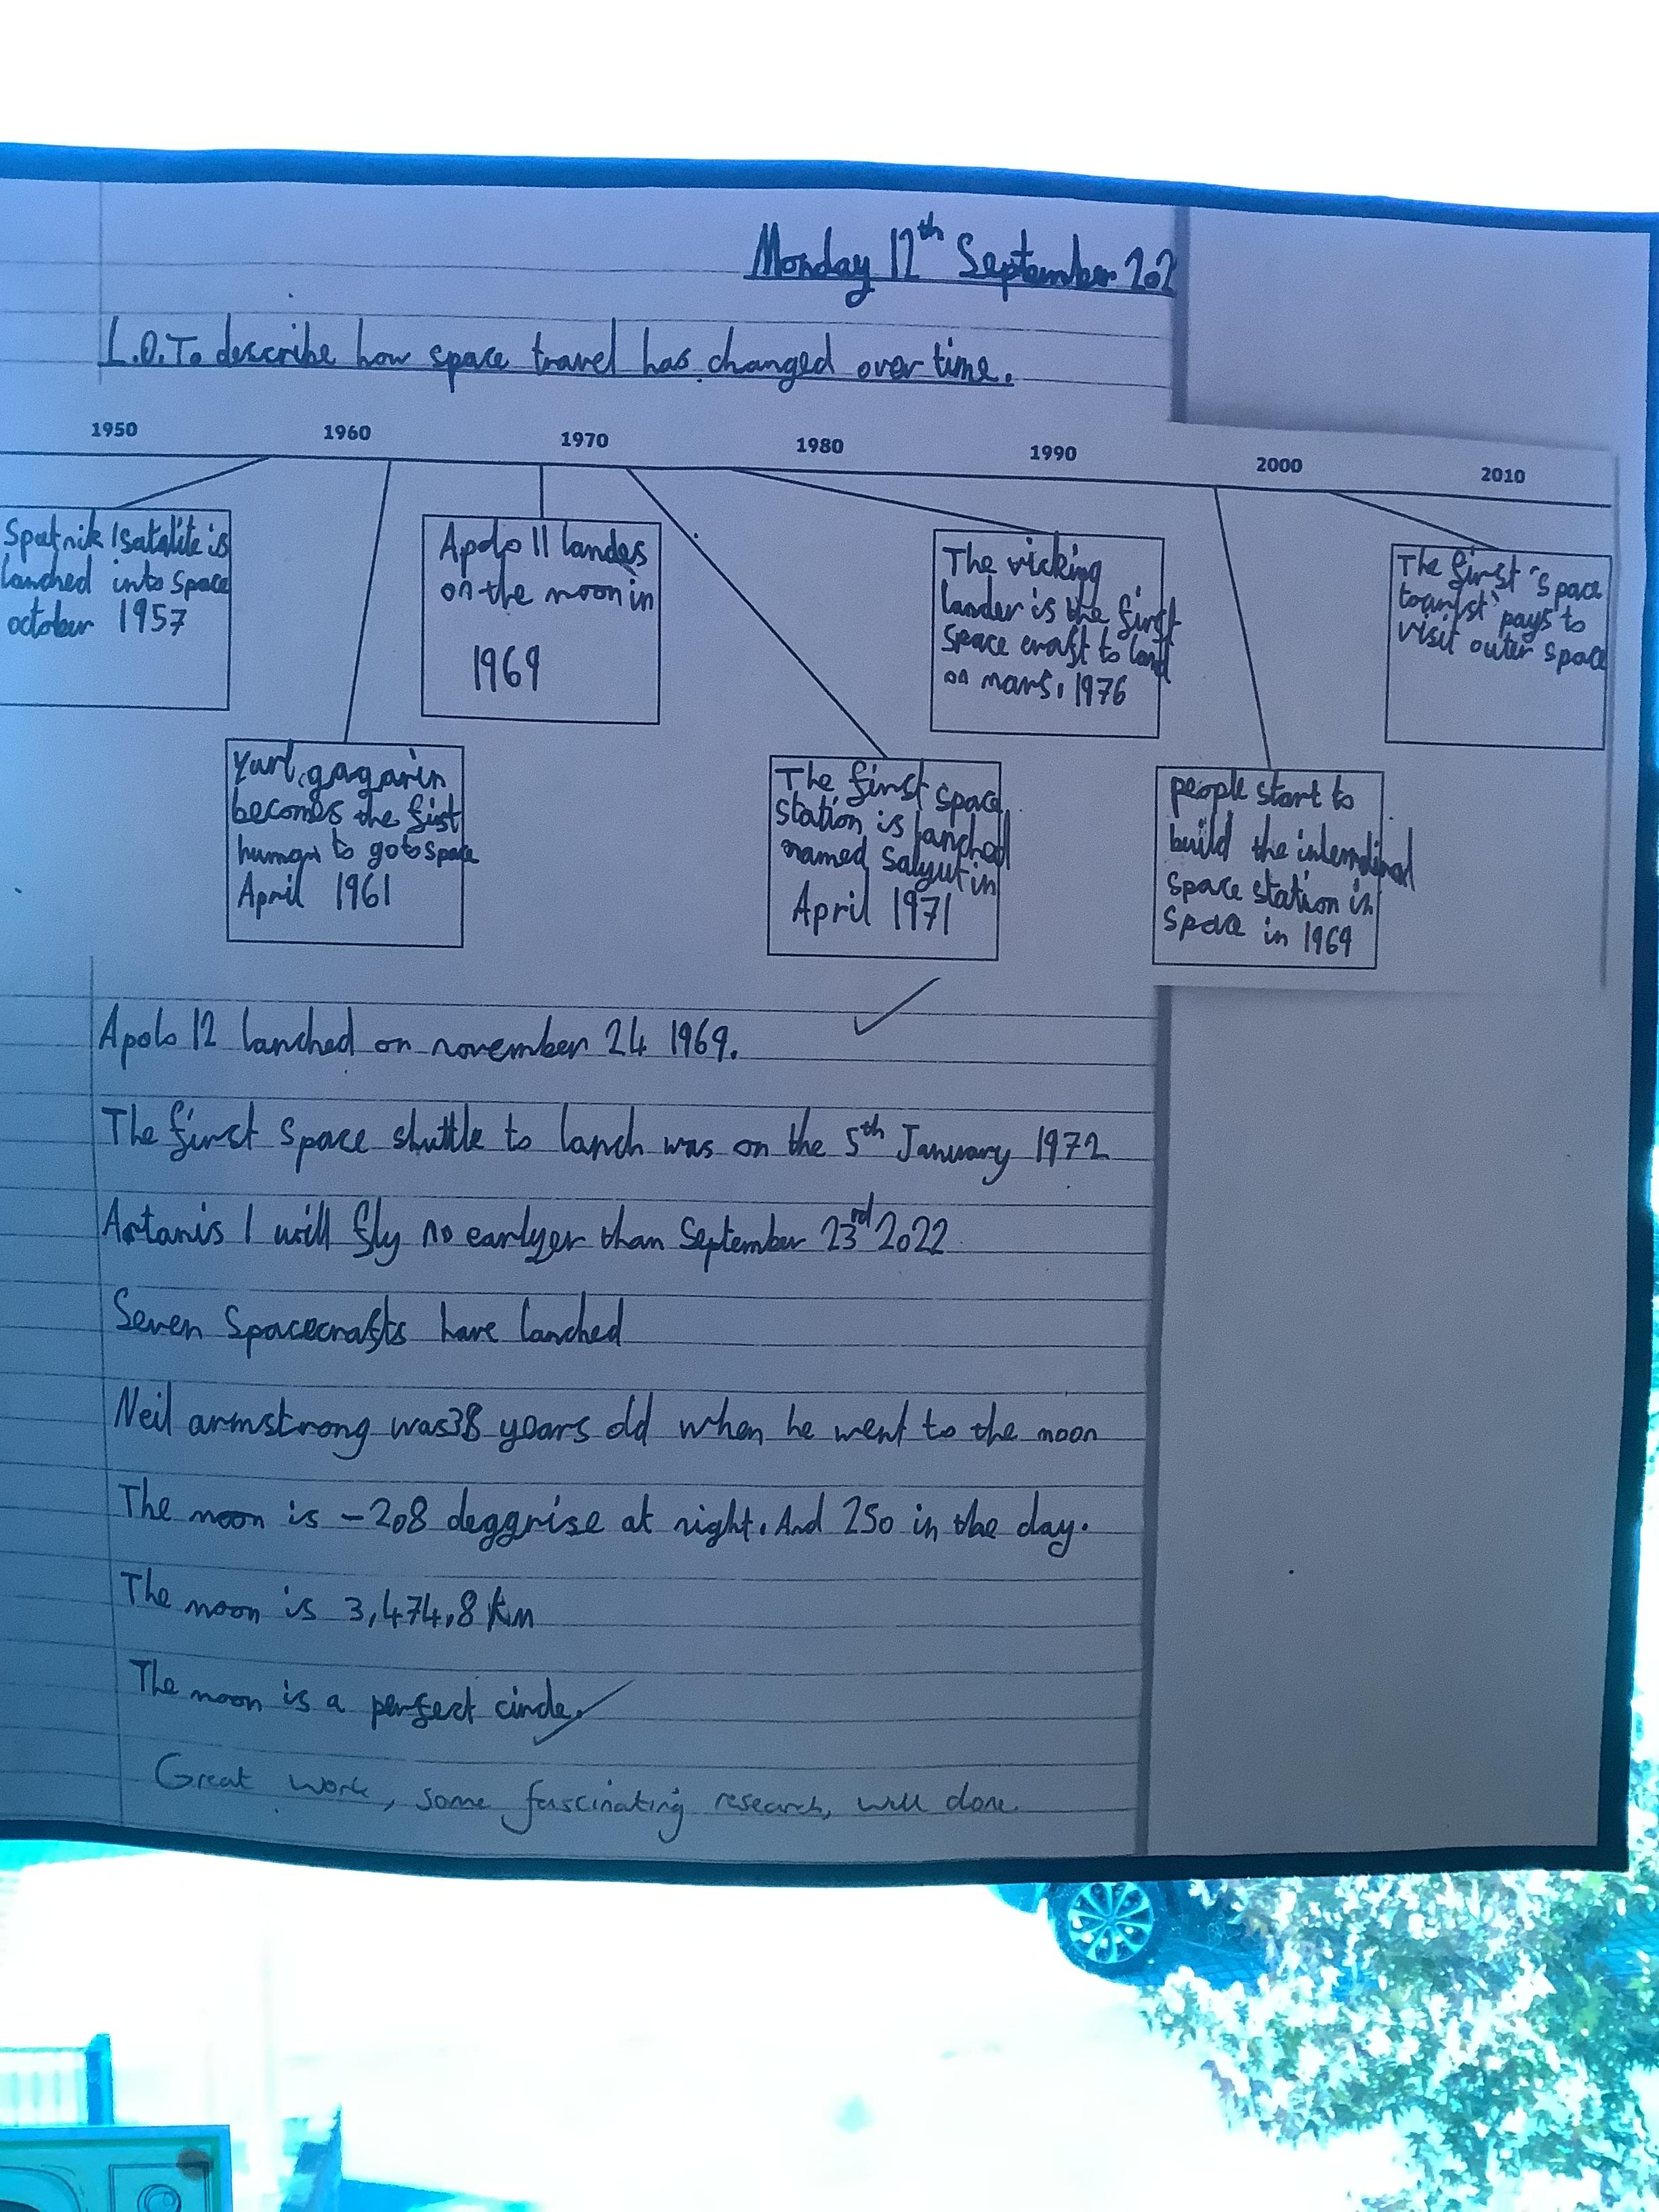 Monday 12th September 202
L.O. To describe how space travel has changed over time.
1950 1960 1970 1980 1990 2000 2010
Sputnik 1 satalite is
lanched into space
october 1957
Apolo 11 landes
on the moon in
1969
The vicking
lander is the first
space craft to land
on mars. 1976
The first 'space
tourist' pays to
visit outer space
Yuri, gagarin
becomes the first
human to go to space
April 1961
The first space
station is lanched
named Salyut in
April 1971
people start to
build the
space station in
space in 1969
Apolo 12 lanched on november 24 1969.
The first space shuttle to lanch was on the 5th January 1972
Artanis 1 will fly no earlyer than September 23rd 2022
Seven Spacecrafts have lanched
Neil armstrong was 38 years old when he went to the moon
The moon is -208 deggrise at night. And 250 in the day.
The moon is 3,474,8 km
The moon is a perfect circle.
Great work, some fascinating research, well done.